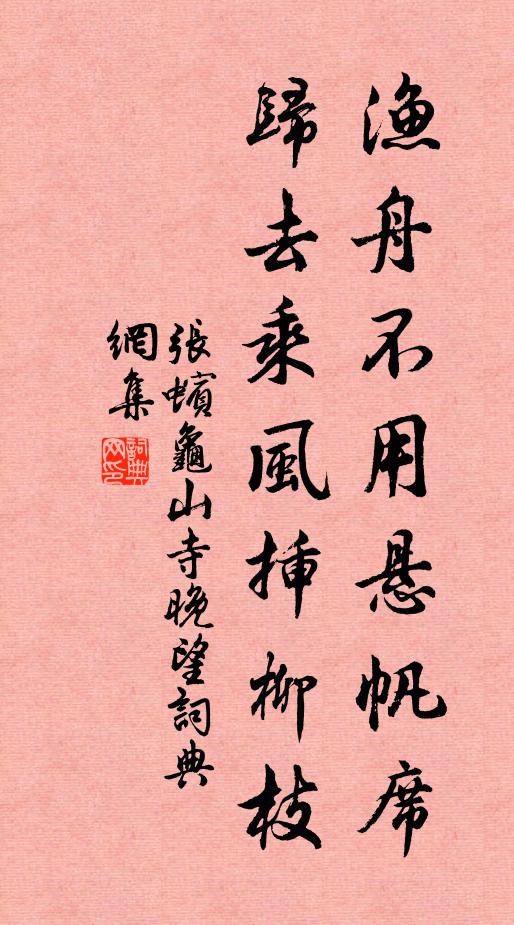 漁舟不用悬帆席
歸去乘風插柳枝
張蠙龜山寺晚望詞典
網集
詞典网印